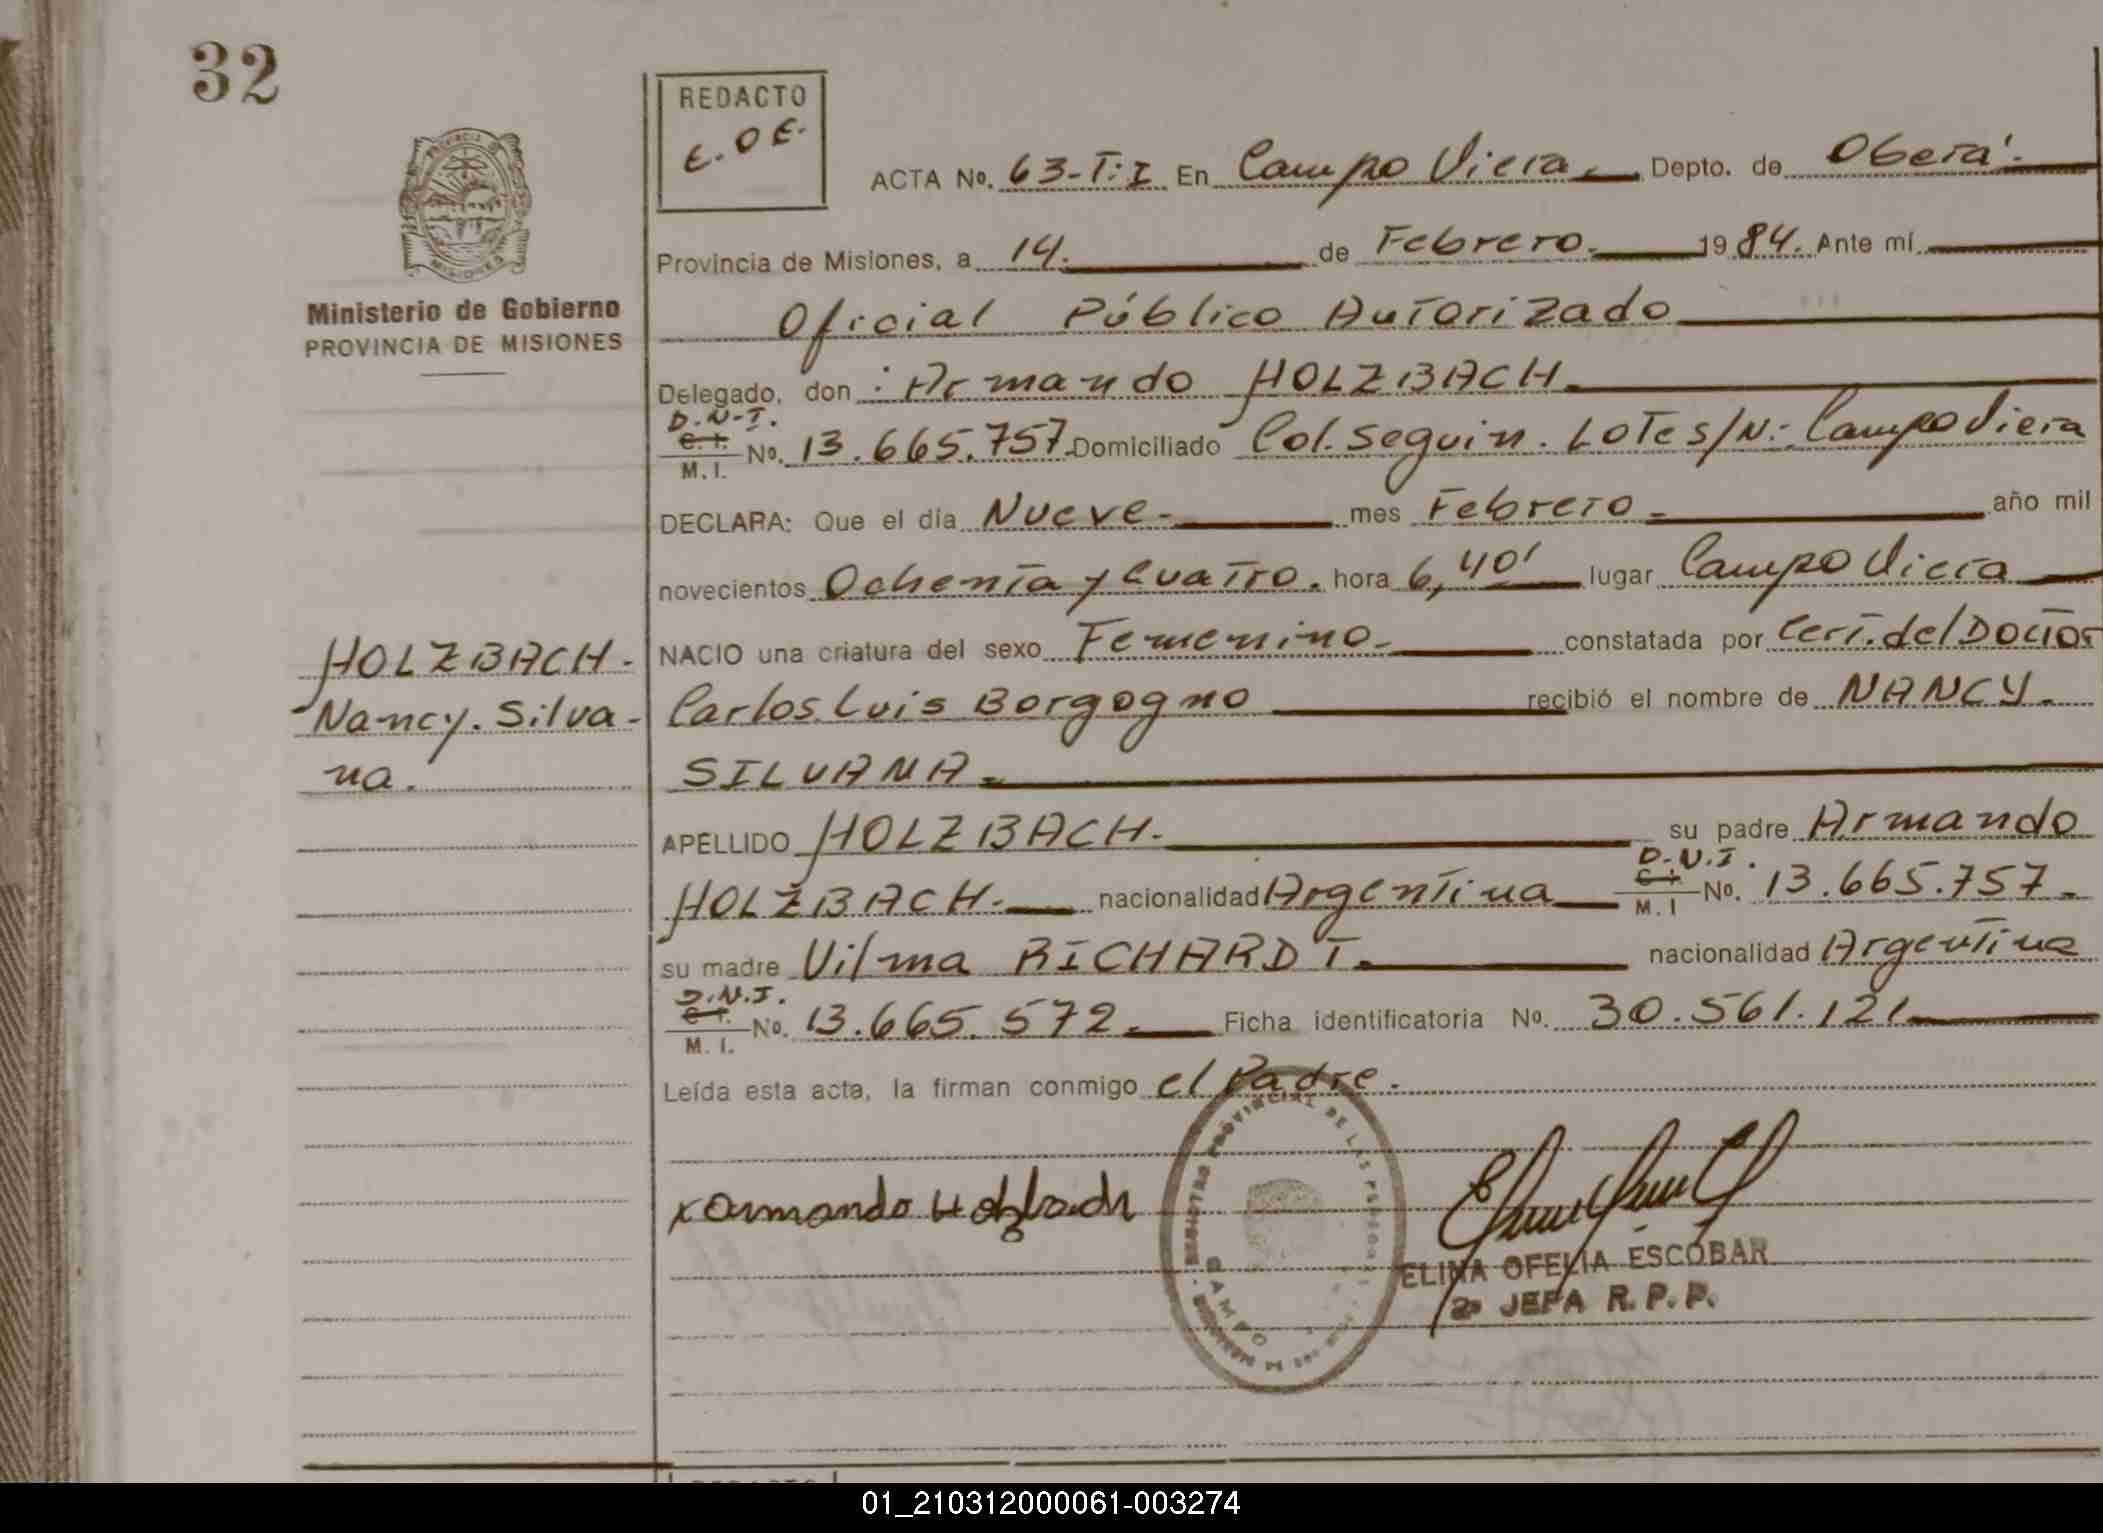 32
PROVINCIA DE
MISIONES
Ministerio de Gobierno
PROVINCIA DE MISIONES
HOLZBACH.
Nancy. Silva-
na.
REDACTO
E. O E.
ACTA No. 63-T:I En Campo Viera Depto. de Oberá.
Provincia de Misiones, a 14. de Febrero. 1984. Ante mí
Oficial Público Autorizado
Delegado, don : Armando HOLZBACH.
D.N.I.
C.I.
M.I. No. 13.665.757 Domiciliado Col. Seguin. Lote s/N: Campo Viera
DECLARA: Que el día Nueve. mes Febrero. año mil
novecientos Ochenta y Cuatro. hora 6,40' lugar Campo Viera
NACIO una criatura del sexo Femenino. constatada por Cert. del Doctor
Carlos Luis Borgogno recibió el nombre de NANCY.
SILVANA.
APELLIDO HOLZBACH. su padre Armando
HOLZBACH. nacionalidad Argentina D.N.I. C.I. M.I No. 13.665.757.
su madre Vilma RICHARDT. nacionalidad Argentina
D.N.I.
C.I.
M.I. No. 13.665.572. Ficha identificatoria No. 30.561.121
Leída esta acta, la firman conmigo el Padre.
REGISTRO PROVINCIAL DE LAS PERSONAS
CAMPO
x Armando Holzbach
ELINA OFELIA ESCOBAR
2a JEFA R. P. P.
REDACTO
01_210312000061-003274